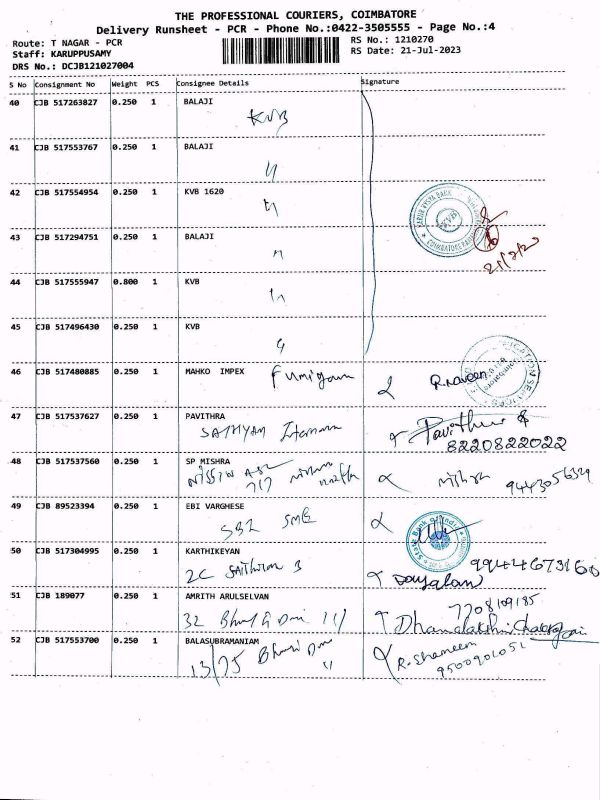 THE PROFESSIONAL COURIERS, COIMBATORE
Delivery Runsheet - PCR - Phone No.:0422-3505555 - Page No.:4
Route: T NAGAR - PCR RS No.: 1210270
Staff: KARUPPUSAMY RS Date: 21-Jul-2023
DRS No.: DCJB121027004
S No Consignment No Weight PCS Consignee Details Signature
40 CJB 517263827 0.250 1 BALAJI
KVB
41 CJB 517553767 0.250 1 BALAJI
42 CJB 517554954 0.250 1 KVB 1620
KVB
43 CJB 517294751 0.250 1 BALAJI
44 CJB 517555947 0.800 1 KVB
45 CJB 517496430 0.250 1 KVB
46 CJB 517480885 0.250 1 MAHKO IMPEX
47 CJB 517537627 0.250 1 PAVITHRA
SATHYAM
8220822022
48 CJB 517537560 0.250 1 SP MISHRA
717
49 CJB 89523394 0.250 1 EBI VARGHESE
SBI SME
State Bank of India
50 CJB 517304995 0.250 1 KARTHIKEYAN
2C
51 CJB 189077 0.250 1 AMRITH ARULSELVAN
7708109185
32
52 CJB 517553700 0.250 1 BALASUBRAMANIAM
13/75
R. Shameem
9500901051